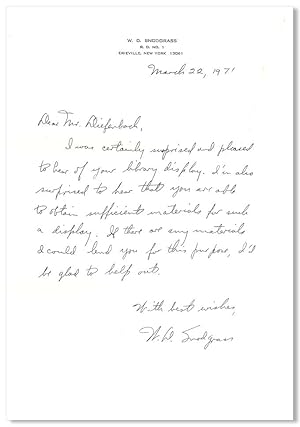 W. D. SNODGRASS
R. D. NO. 1
ERIEVILLE, NEW YORK 13061
March 22, 1971
Dear Mr. Diefenbach,
I was certainly surprised and pleased
to hear of your library display. I'm also
surprised to hear that you are able
to obtain sufficient materials for such
a display. If there are any materials
I could lend you for this purpose, I'd
be glad to help out.
With best wishes,
W. D. Snodgrass